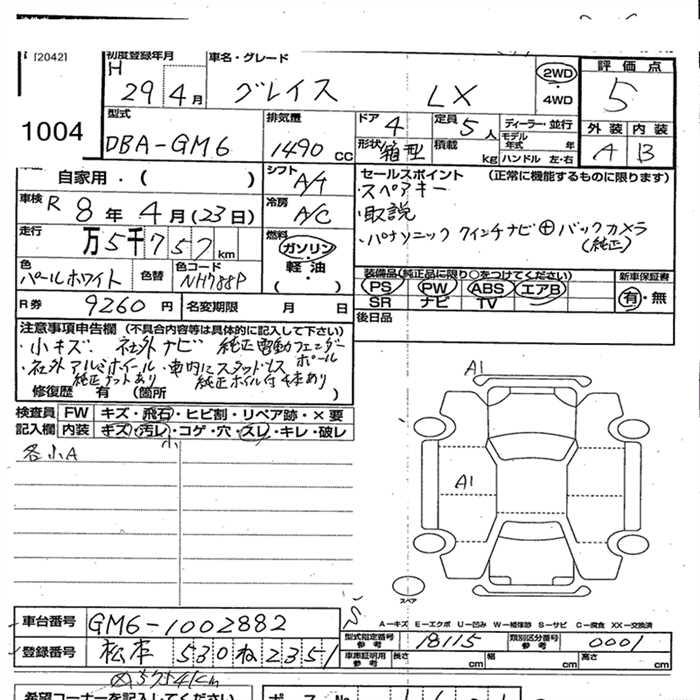 [2042]
初度登録年月 車名・グレード
H 29 4月 グレイス LX 2WD 4WD
評価点 5
1004
型式 DBA-GM6
排気量 1490 cc
ドア 4 定員 5人 ディーラー・並行
形状 箱型 積載 kg モデル年式 年 ハンドル 左・右
外装 内装
A B
自家用・( )
シフト A/T
車検 R 8年 4月(23日)
冷房 A/C
走行 万5千757km
燃料 ガソリン 軽油 ( )
色 パールホワイト 色替 色コード NH788P
R券 9260円 名変期限 月 日
セールスポイント (正常に機能するものに限ります)
・スペアキー
・取説
・パナソニック 7インチナビ ⊕ バックカメラ
(純正)
装備品(純正品に限り○をつけてください) 新車保証書
PS PW ABS エアB 有・無
SR ナビ TV
後日品
注意事項申告欄 (不具合内容等は具体的に記入して下さい)
・小キズ・社外ナビ 純正電動フェンダーポール
・社外アルミホイール・車内にスタッドレス
純正ナットあり 純正ホイル付4本あり
修復歴 有 (箇所 )
検査員記入欄
FW キズ・飛石・ヒビ割・リペア跡・×要
小
内装 キズ・汚レ・コゲ・穴・スレ・キレ・破レ
各小A
A1
A1
スペア
A-キズ E-エクボ U-凹み W-補修跡 S-サビ C-腐食 XX-交換済
車台番号 GM6-1002882
登録番号 松本 530 ね 2351
型式指定番号 参考 18115 類別区分番号 参考 0001
車庫証明用 参考 長さ cm 幅 cm 高さ cm
希望コーナーを記入してください